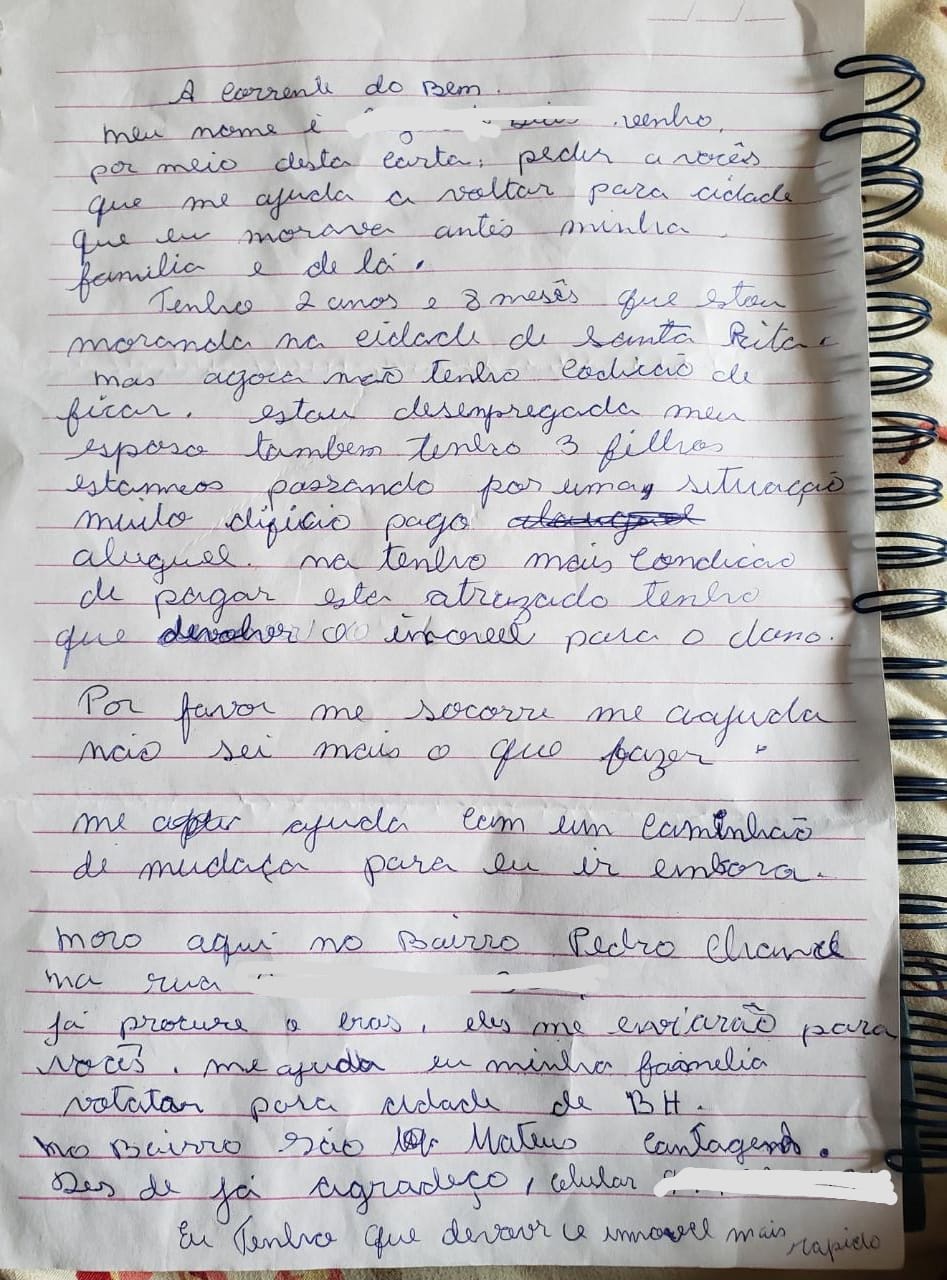 A corrente do Bem.
meu nome é venho,
por meio desta carta, pedir a vocês
que me ajuda a voltar para cidade
que eu morava antes minha
familia e de lá.
Tenho 2 anos e 8 mesês que estou
morando na cidade de Santa Rita.
mas agora não tenho codicão de
ficar. estou desempregada meu
esposo tambem tenho 3 filhos
estamos passando por uma situação
muito dificio pago
aluguel. na tenho mais condicão
de pagar esta atrazado tenho
que devolver o para o dono.
Por favor me socorre me aajuda
não sei mais o que fazer
me ajuda com um caminhão
de mudaça para eu ir embora.
moro aqui no Bairro Pedro
na rua
já procure o cras, eles me enviarão para
vocês. me ajuda eu minha
para cidade de BH.
no Bairro São Mateus contagem.
Des de já agradeço, celular
Eu Tenho que mais rapido